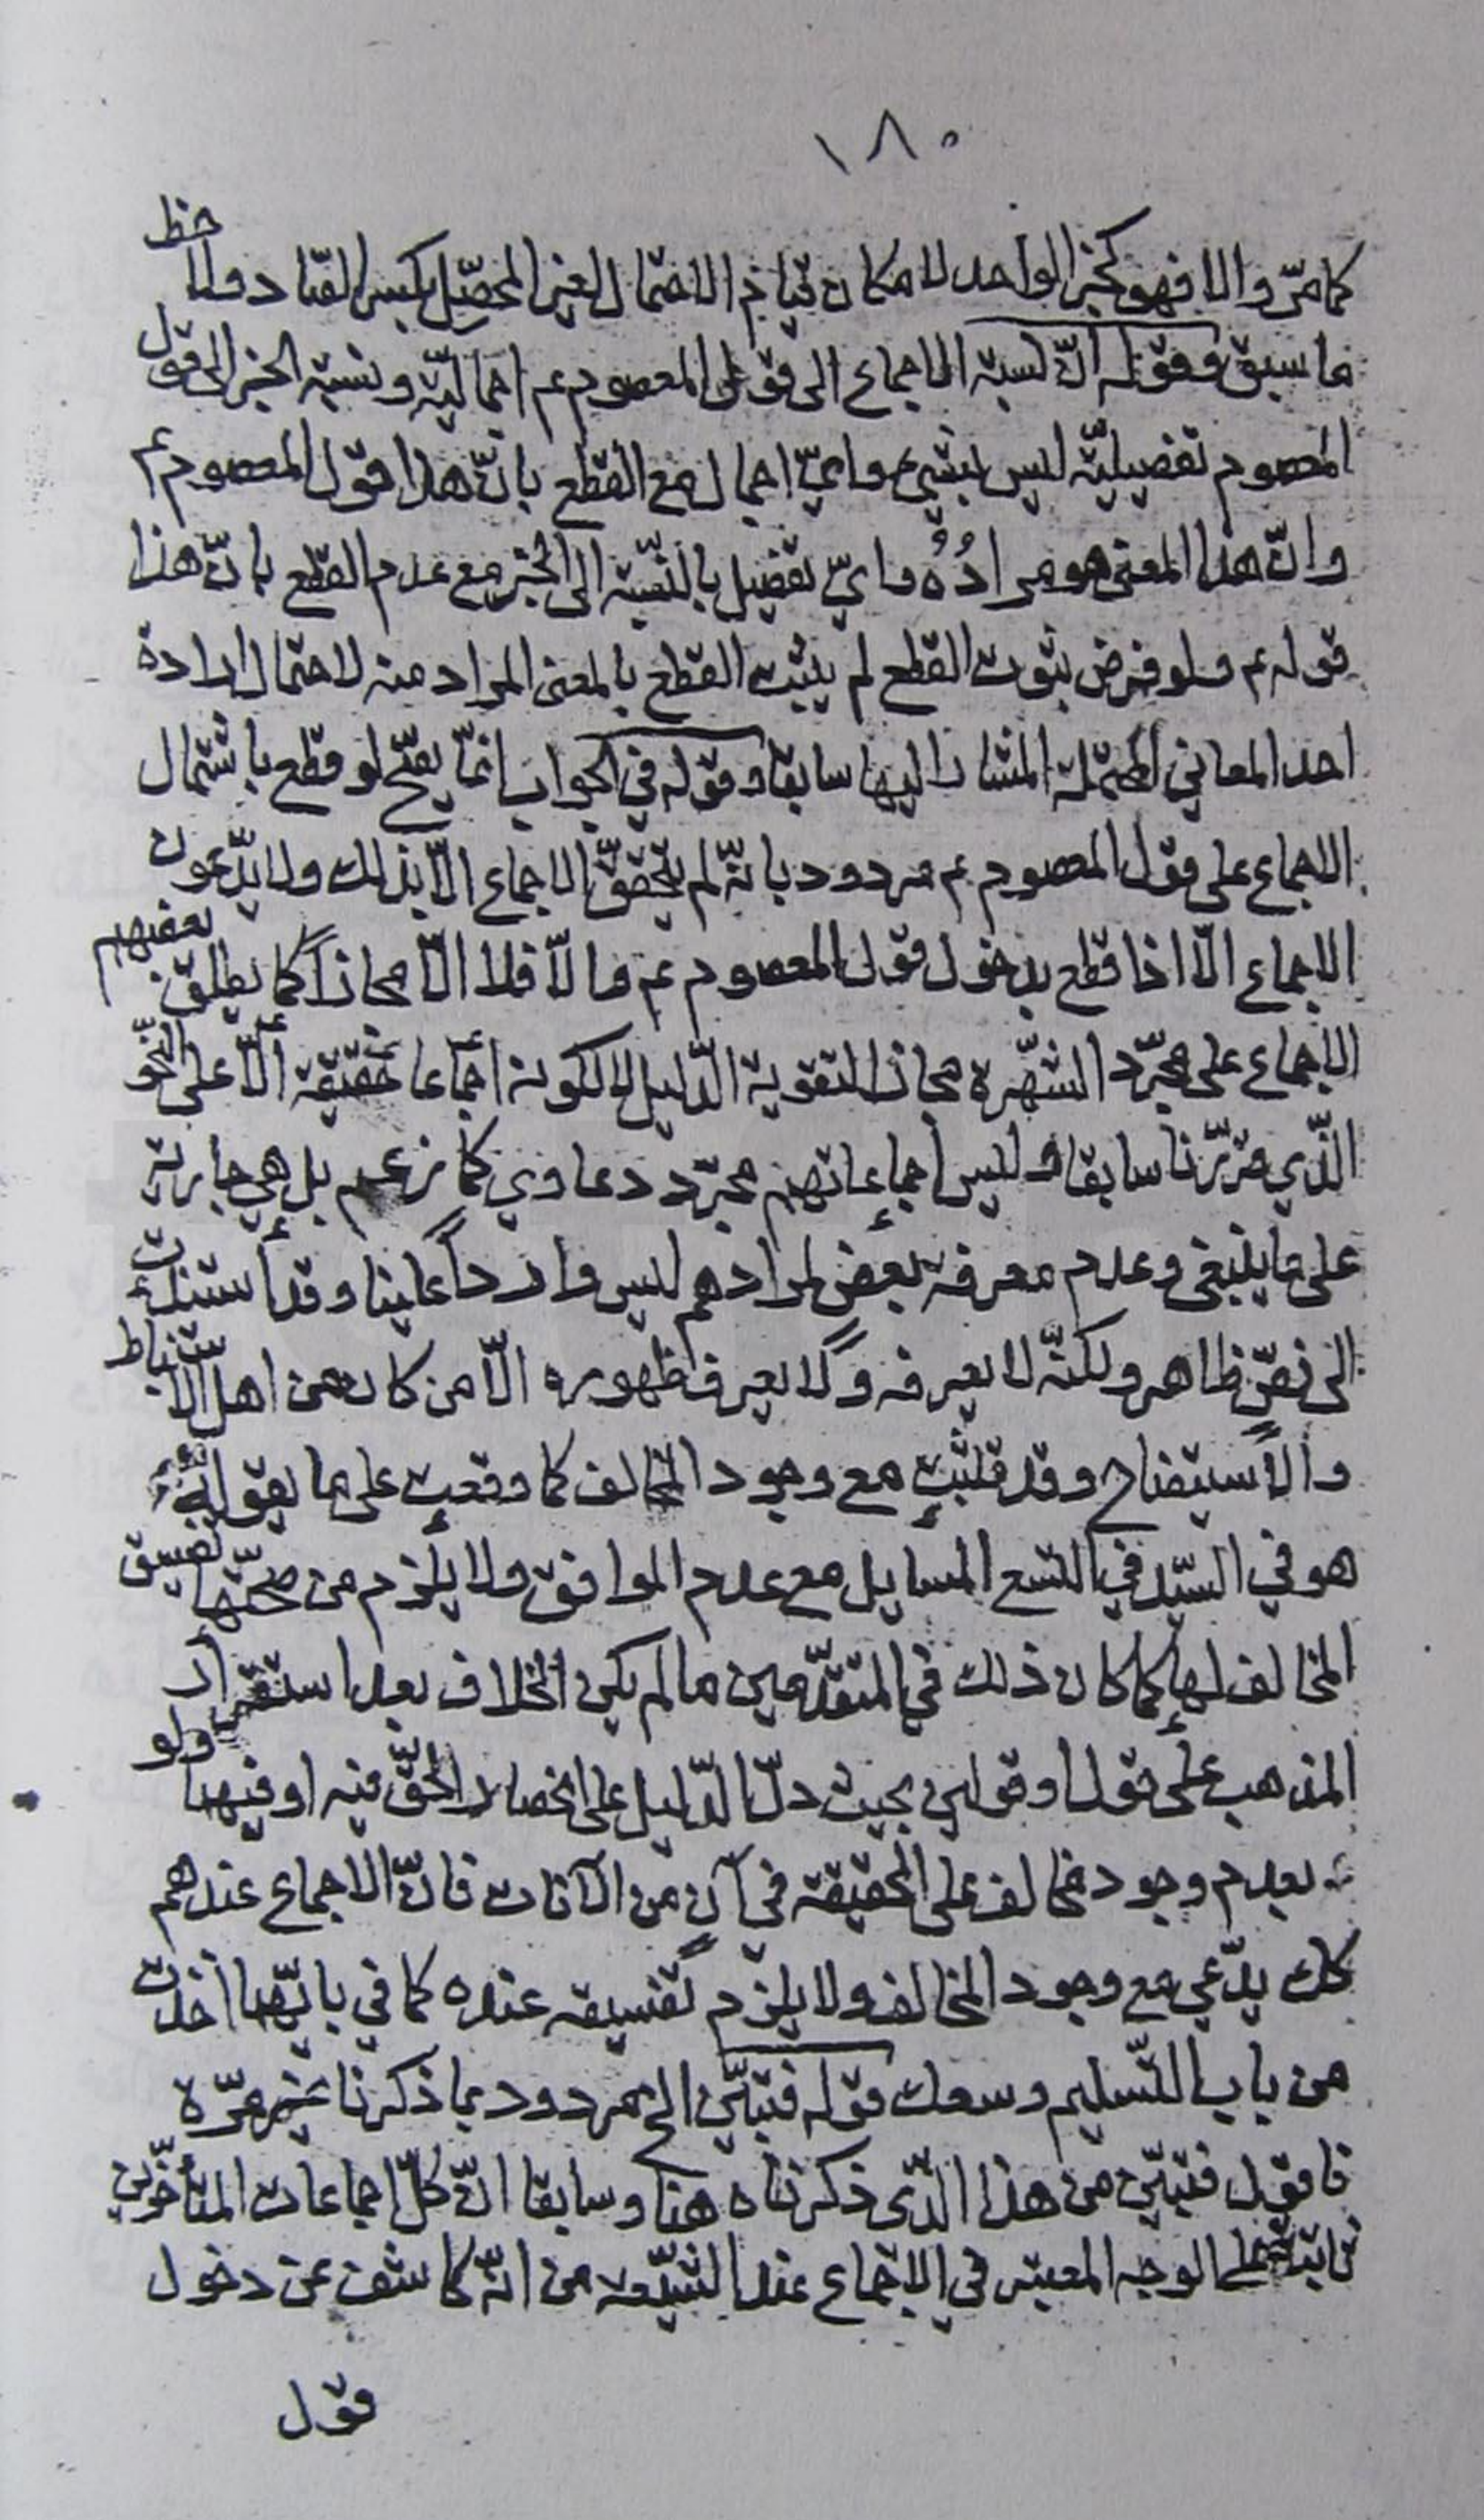 ١٨٠
كما مرّ والا فهو كخبر الواحد لامكان قيام الاحتمال لغير المحصّل بكسر الصّاد ولاحظ
ما سبق وقوله انّ نسبة الاجماع الى قول المعصوم عم اجماليّة ونسبة الخبر الى قول
المعصوم تفصيليّة ليس بشيء وايّ اجمال مع القطع بانّ هذا قول المعصوم عم
وانّ هذا المعنى هو مرادُهُ وايّ تفصيل بالنّسبة الى الخبر مع عدم القطع بانّ هذا
قوله عم ولو فرض ثبوت القطع لم يثبت القطع بالمعنى المراد منه لاحتمال ارادة
احد المعاني المحتملة المشار اليها سابقا وقوله في الجواب انّما يصحّ لو قطع باشتمال
الاجماع على قول المعصوم عم مردود بانّه لم يتحقّق الاجماع الّا بذلك ولا يدّعون
الاجماع الّا اذا قطع بدخول قول المعصوم عم والّا فلا الّا مجازاً كما يطلق بعضهم
الاجماع على مجرّد الشّهرة مجازا لتقوية الدّليل لا لكونه اجماعا حقيقة الّا على النّحو
الّذي قرّرنا سابقا وليس اجماعاتهم مجرّد دعاوي كما زعم بل هي جارية
على ما ينبغي وعدم معرفة بعض لمرادهم ليس وارداً علينا وقد استندت
الى نصّ ظاهر ولكنّه لا يعرفه ولا يعرف ظهوره الّا من كان من اهل الاستنباط
والاستيضاح وقد قلّت مع وجود المخالف كما وقعت على ما يقوله
هو في السّيّد في التسع المسايل مع عدم الموافق ولا يلزم من صحّتها تفسيق
المخالف لها كما كان ذلك في المتقدّمين ما لم يكن الخلاف بعد استقرار
المذهب على قول او قولين بحيث دلّ الدّليل على انحصار الحقّ فيه او فيهما ولو
بعدم وجود مخالف على الحقيقة في آن من الآنات فانّ الاجماع عندهم
كك يدّعي مع وجود المخالف ولا يلزم تفسيقه عنده كما في بايّهما اخذت
من باب التّسليم وسعك قوله فتبيّن الخ مردود بما ذكرنا غير مرّة
فاقول فتبيّن من هذا الّذى ذكرناه هنا وسابقا انّ كلّ اجماعات المتأخّرين
ثابتة على الوجه المعتبر في الاجماع عند الشّيعة من انّه كاشف عن دخول
قول